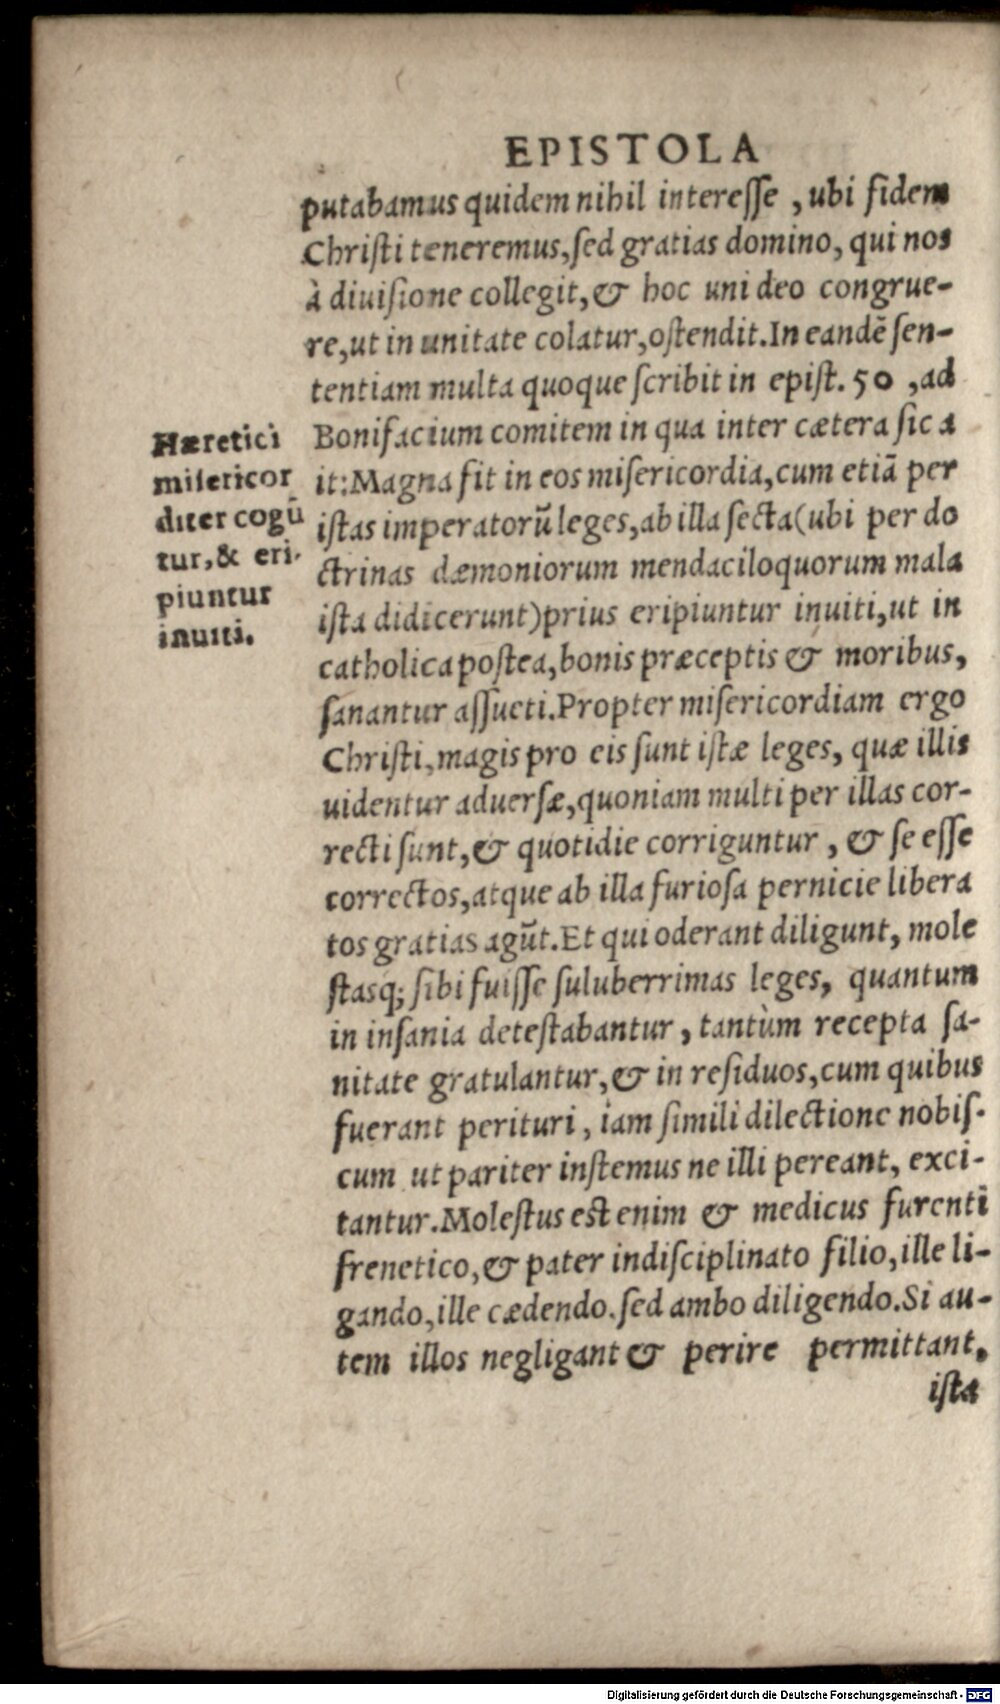 EPISTOLA
putabamus quidem nihil interesse, ubi fidem
Christi teneremus, sed gratias domino, qui nos
à diuisione collegit, & hoc uni deo congrue-
re, ut in unitate colatur, ostendit. In eandē sen-
tentiam multa quoque scribit in epist. 50, ad
Bonifacium comitem in qua inter cætera sic a
it: Magna fit in eos misericordia, cum etiā per
istas imperatorū leges, ab illa secta (ubi per do
ctrinas dæmoniorum mendaciloquorum mala
ista didicerunt) prius eripiuntur inuiti, ut in
catholica postea, bonis præceptis & moribus,
sanantur assueti. Propter misericordiam ergo
Christi, magis pro eis sunt istæ leges, quæ illis
uidentur aduersæ, quoniam multi per illas cor-
recti sunt, & quotidie corriguntur, & se esse
correctos, atque ab illa furiosa pernicie libera
tos gratias agūt. Et qui oderant diligunt, mole
stasq; sibi fuisse suluberrimas leges, quantum
in insania detestabantur, tantùm recepta sa-
nitate gratulantur, & in residuos, cum quibus
fuerant perituri, iam simili dilectione nobis-
cum ut pariter instemus ne illi pereant, exci-
tantur. Molestus est enim & medicus furenti
frenetico, & pater indisciplinato filio, ille li-
gando, ille cædendo. sed ambo diligendo. Si au-
tem illos negligant & perire permittant,
ista
Hæretici
misericor
diter cogū
tur, & eri-
piuntur
inuiti.
Digitalisierung gefördert durch die Deutsche Forschungsgemeinschaft - DFG